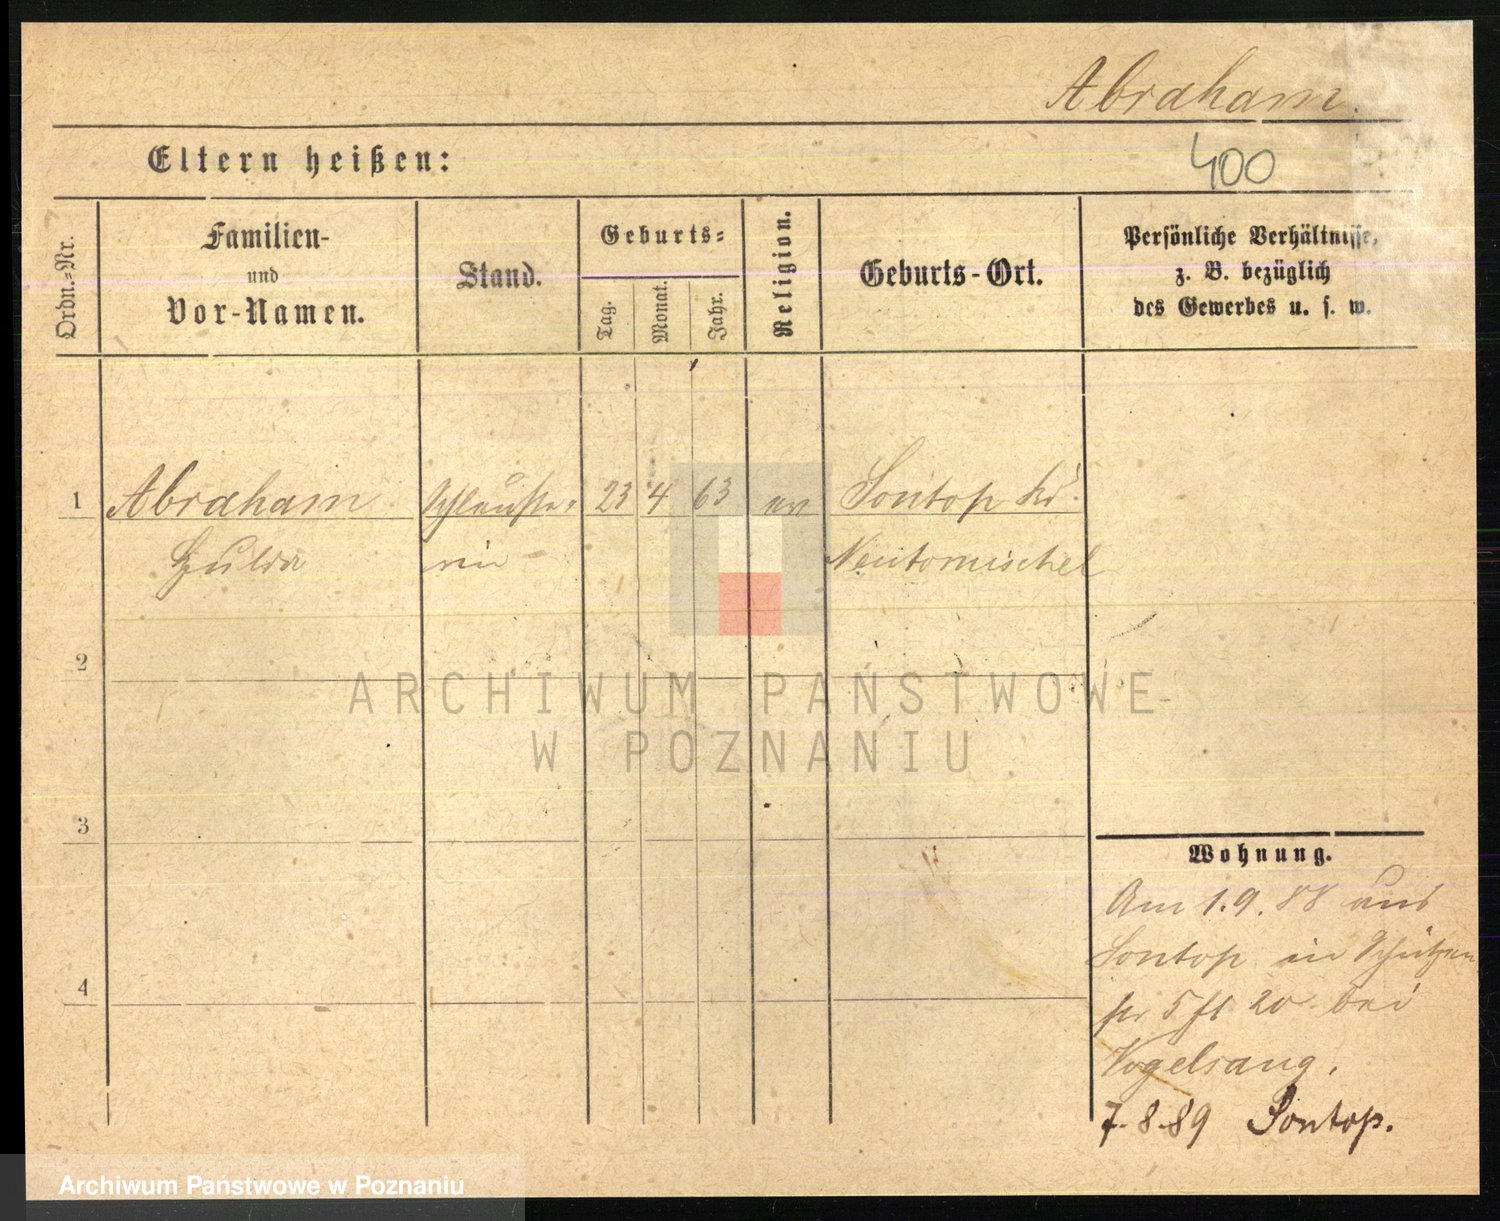 Abraham.
400
Eltern heißen:
Ordn.-Nr.
Familien-
und
Vor-Namen.
Stand.
Geburts-
Tag.
Monat.
Jahr.
Religion.
Geburts-Ort.
Persönliche Verhältnisse,
z. B. bezüglich
des Gewerbes u. s. w.
1 Abraham 23 4 63 ev Sontop Kr.
Hulda rin Neutomischel
2
3
4
Wohnung.
Am 1.9.88 aus
Sontop in Schützen
str 5 20 bei
Vogelsang.
7.8.89 Sontop.
ARCHIWUM PAŃSTWOWE
W POZNANIU
Archiwum Państwowe w Poznaniu